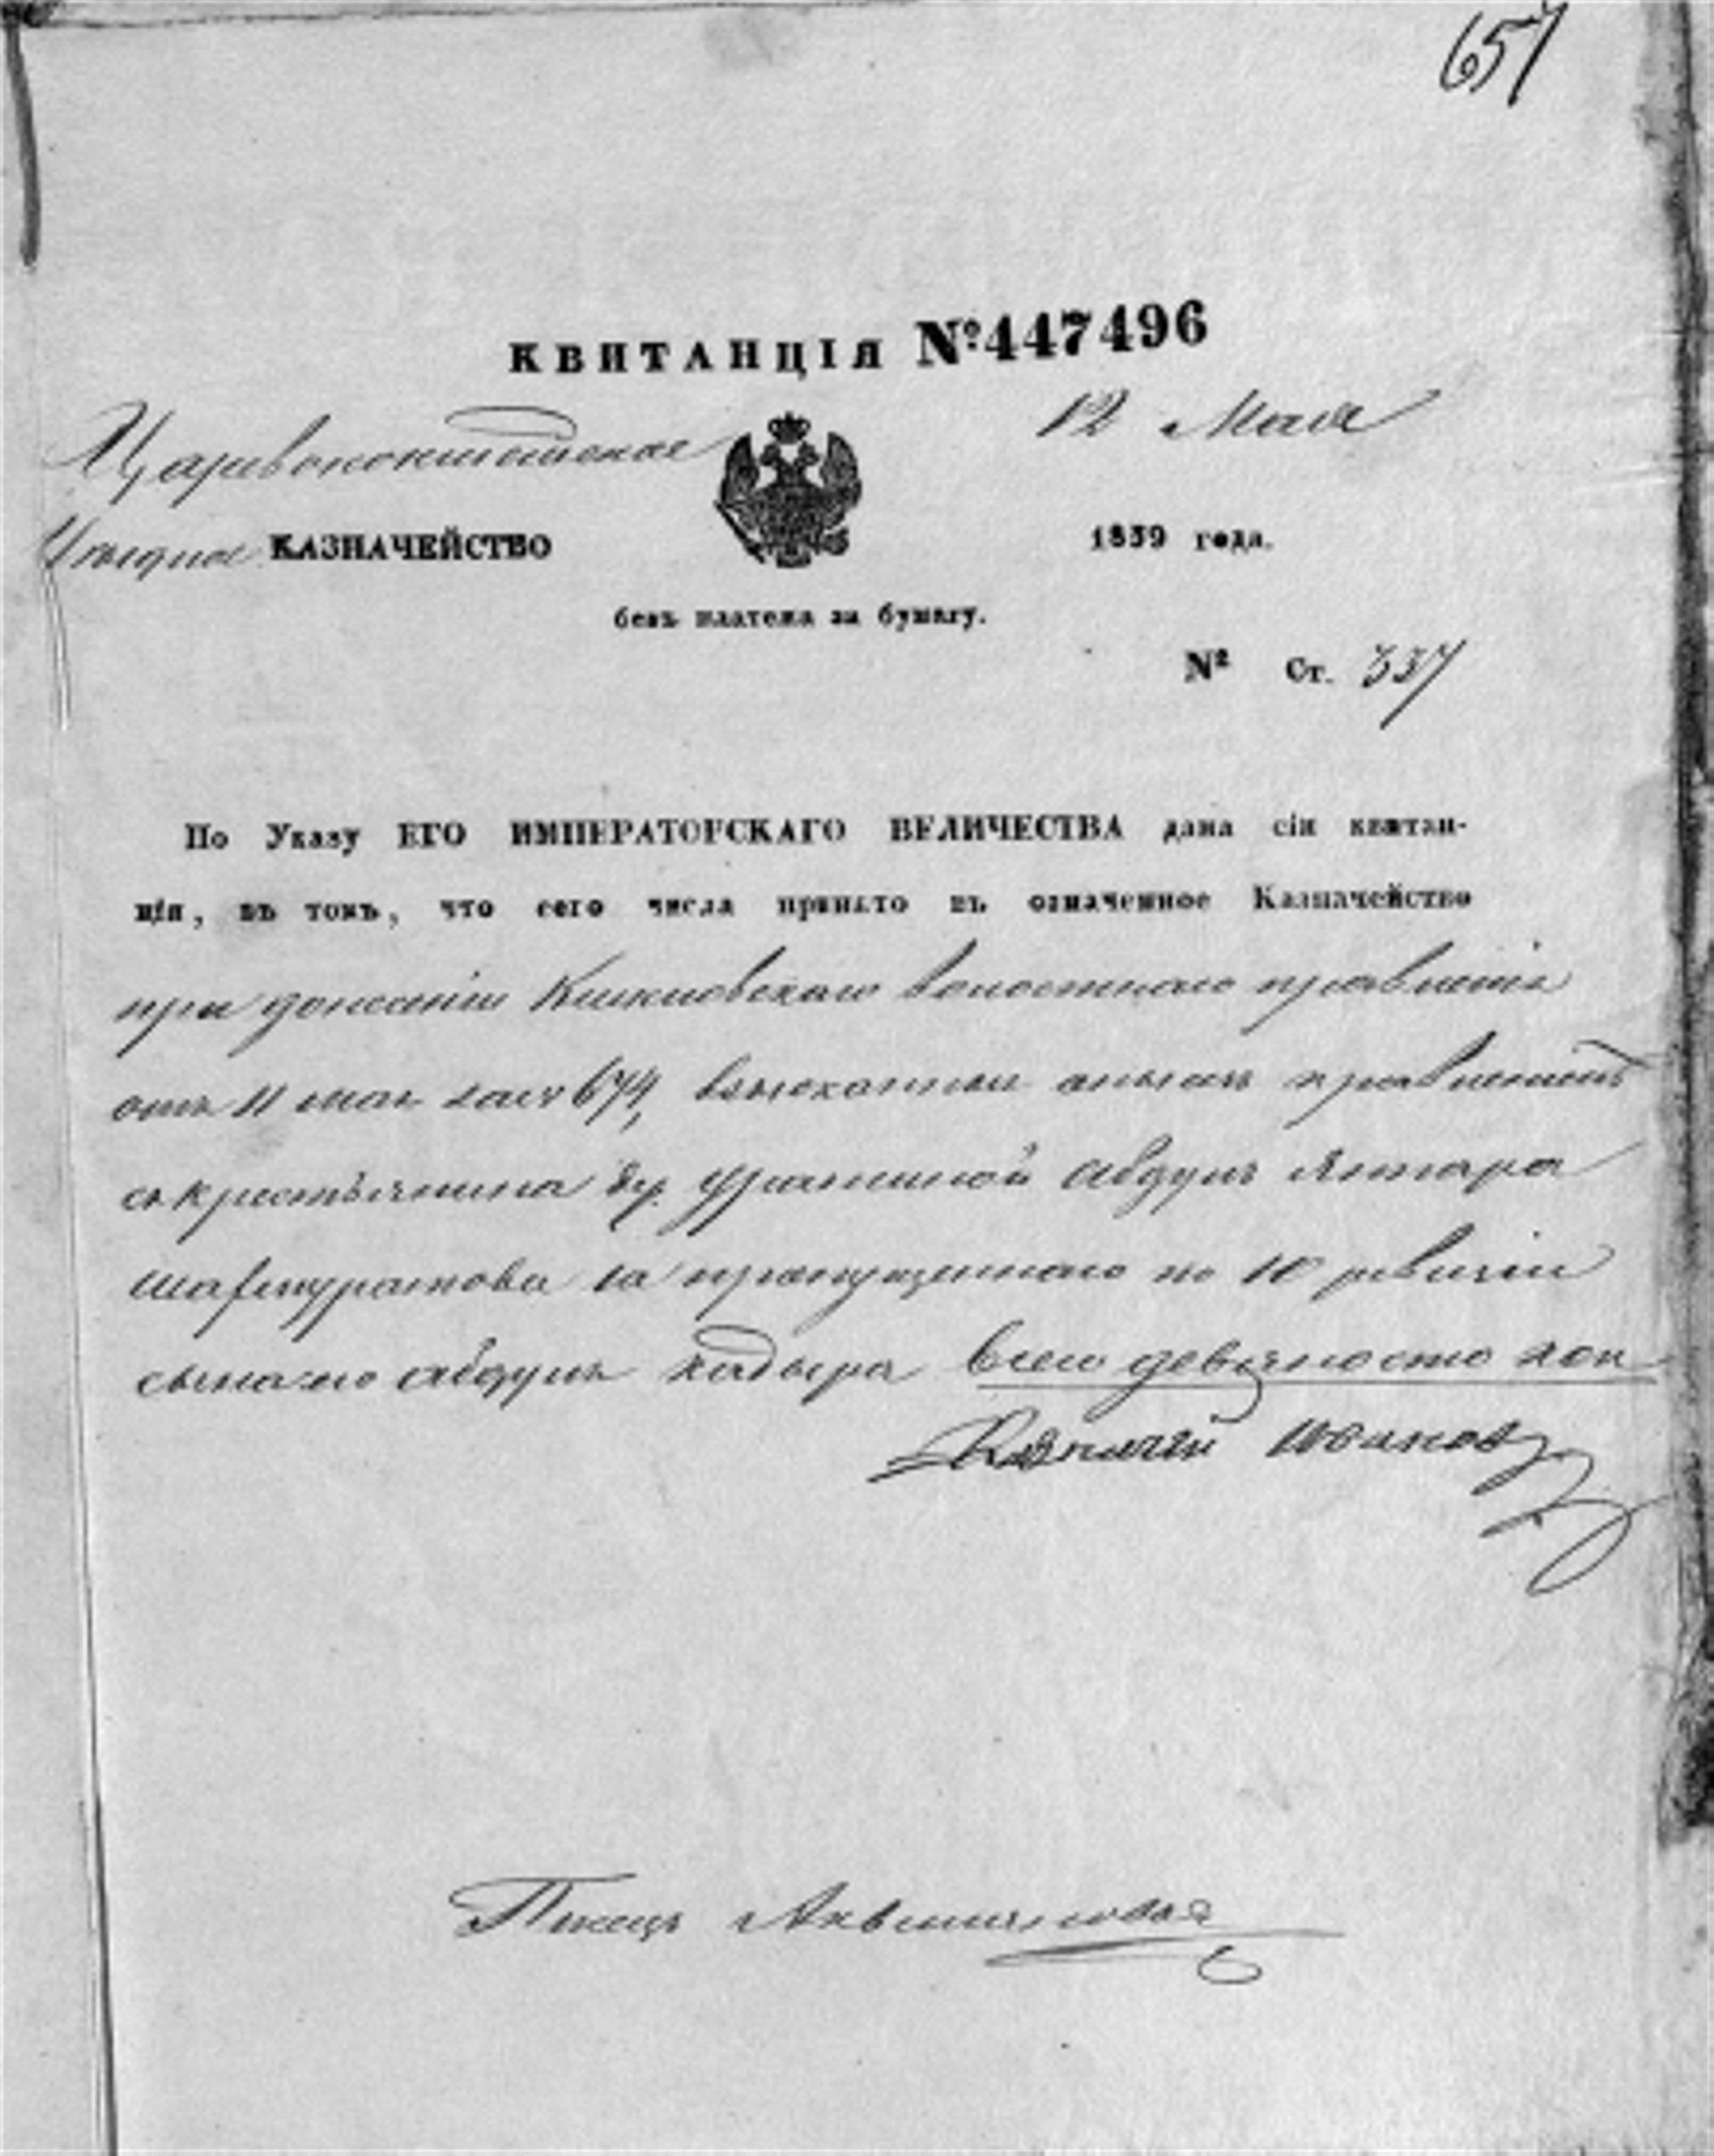 657
КВИТАНЦІЯ №447496
Царевококшайское 12 Мая
Уѣздное КАЗНАЧЕЙСТВО 1859 года.
безъ платежа за бумагу.
№ Ст. 337
По Указу ЕГО ИМПЕРАТОРСКАГО ВЕЛИЧЕСТВА дана сія квитан-
ція, въ томъ, что сего числа принято въ означенное Казначейство
при донесеніи волостнаго правленія
отъ 11 мая за № 674, взысканныя правленіемъ
съ крестьянина др. Абдулъ
за пропущеннаго по 10 ревизіи
сына его Абдулъ Кадыра всего девяносто коп
Казначей Ивановъ
Писецъ